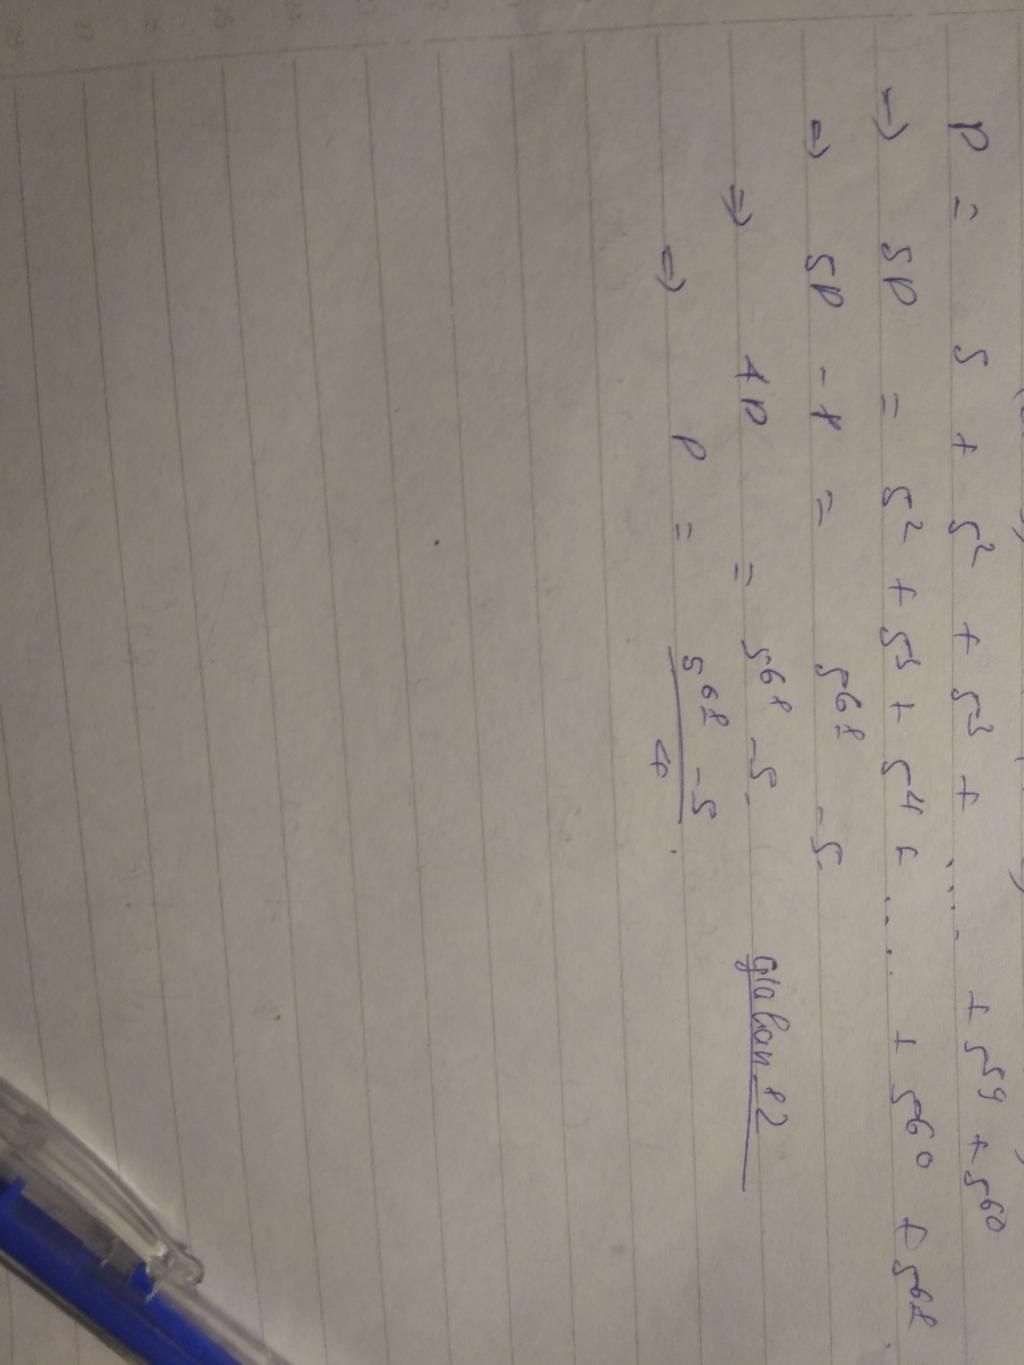 P = 5 + 5² + 5³ + .... + 5⁵⁹ + 5⁶⁰
→ 5P = 5² + 5³ + 5⁴ + ... + 5⁶⁰ + 5⁶¹.
⇒ 5P - P = 5⁶¹ - 5.
⇒ 4P = 5⁶¹ - 5.
⇒ P = (5⁶¹ - 5)/4.